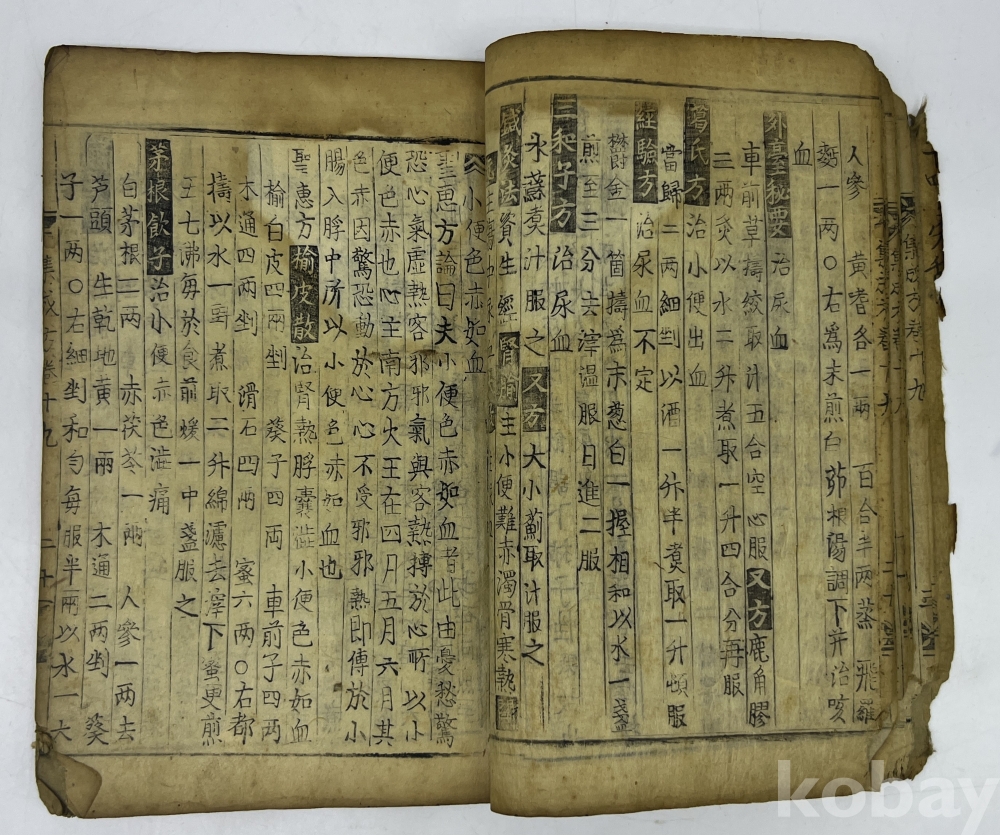 人參 黃耆各一兩 百合半兩蒸 飛羅
麪一兩〇右爲末煎白茆根湯調下幷治咳
血
外臺秘要 治尿血
車前草擣絞取汁五合空心服 又方 鹿角膠
二兩灸以水二升煮取一升四合分再服
葛氏方 治小便出血
當歸二兩細剉以酒一升半煮取一升頓服
經驗方 治尿血不定
欎金一箇擣爲末葱白一握相和以水一盞
煎至三分去滓溫服日進二服
三和子方 治尿血
水蘇煑汁服之 又方 大小薊取汁服之
鍼灸法 資生經 腎腧主小便難赤濁骨寒熱
小便色赤如血
聖惠方論曰夫小便色赤如血者此由憂愁驚
恐心氣虛熱客邪邪氣與客熱搏於心所以小
便色赤也心主南方火王在四月五月六月其
色赤因驚恐動於心心不受邪邪熱即傳於小
腸入脬中所以小便色赤如血也
聖惠方 榆皮散 治腎熱脬囊澁小便色赤如血
榆白皮四兩剉 葵子四兩 車前子四兩
木通四兩剉 滑石四兩 蜜六兩〇右都
擣以水一斗煮取二升綿濾去滓下蜜更煎
三七沸每於食前煖一中盞服之
茅根飮子 治小便赤色澁痛
白茅根二兩 赤茯苓一兩 人參一兩去
芦頭 生乾地黃一兩 木通二兩剉 葵
子一兩〇右細剉和勻每服半兩以水一大
集成方卷十九 二十
集成方卷十九
kobay